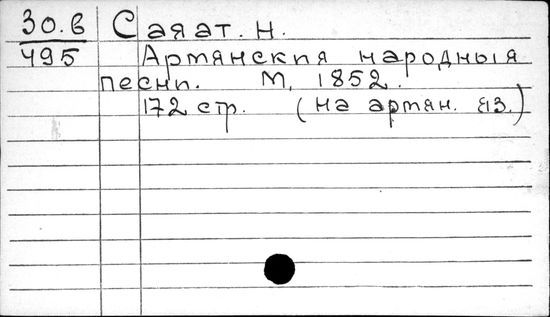 30.6 Саят. Н.
495 Армянския народныя
песни. М, 1852.
172 стр. (на армян. яз.)